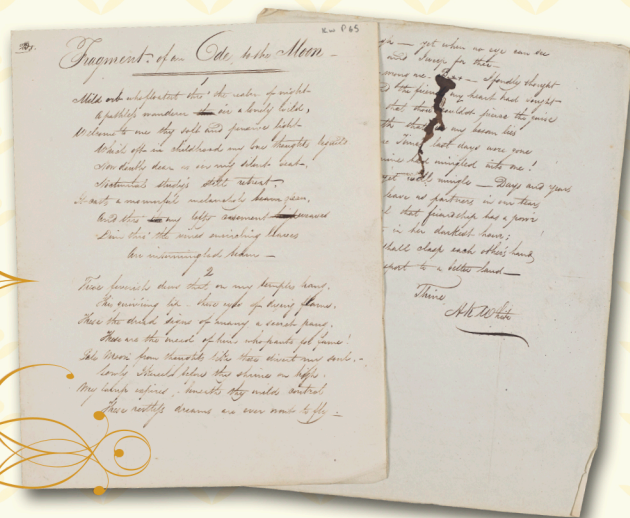 Kw P 65
Fragment of an Ode, to the Moon
1
Mild orb who floatest thro' the realm of night
A pathless wanderer o'er a lonely wild,
Welcome to me thy soft and pensive light
Which oft in childhood my lone thoughts beguil'd
Now doubly dear as o'er my silent seat
Nocturnal study's still retreat
It casts a mournful melancholy gleam
And thro' my lofty casement weaves
Dim thro' the vines encircling leaves
An intermingled beam —
2
These feverish dews that on my temples hang,
This quivering lip these eyes of dying flame.
These the dread signs of many a secret pang,
These are the meed of him who pants for fame!
Pale Moon from thoughts like these divert my soul.
Lowly I kneel before thy shrine on high.
My lamp expires beneath thy mild control
These restless dreams are ever wont to fly
yet when no eye can see
and I weep for thee
I fondly thought
the friend my heart had sought
that thou wouldst
my bosom
last days were gone
had mingled with me!
yet mingle — Days and years
leave us partners in our tears
that friendship has a power
in her darkest hour;
shall clasp each other's hand
to a better land —
Thine
H K White